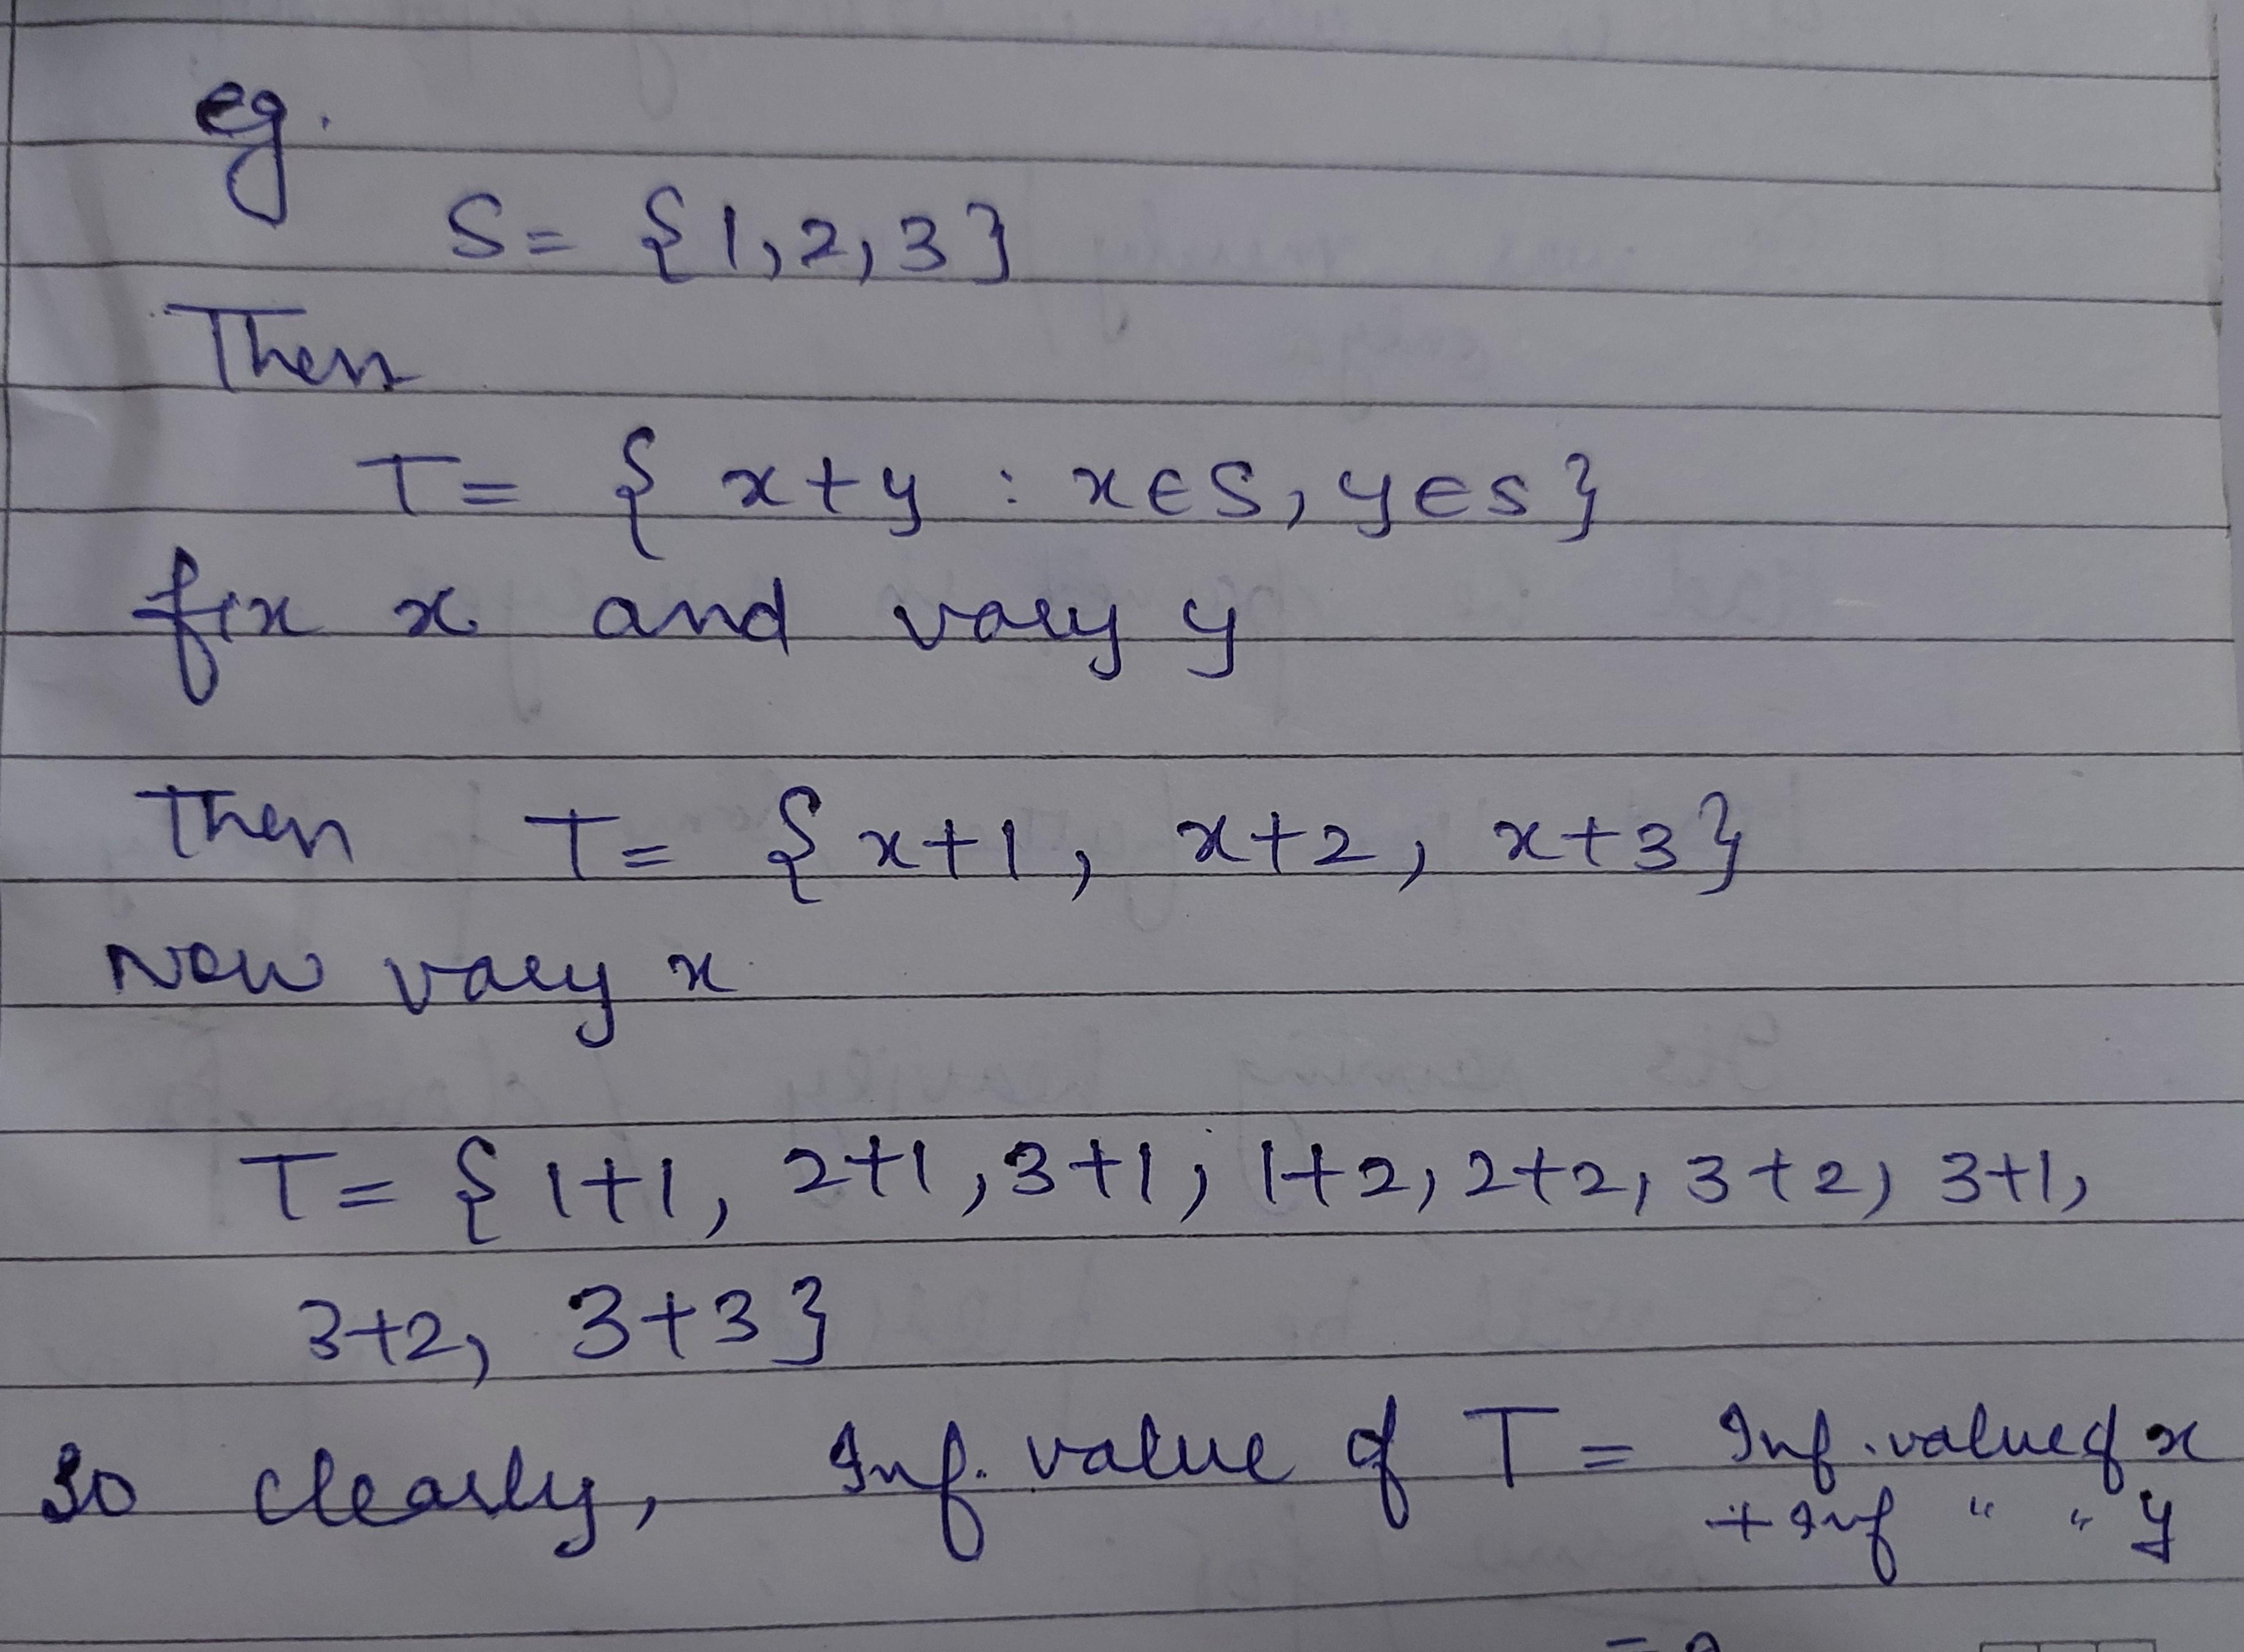 eg.
S = {1, 2, 3}
Then
T = { x + y : x ∈ S, y ∈ S}
fix x and vary y
Then T = { x+1, x+2, x+3}
Now vary x
T = { 1+1, 2+1, 3+1, 1+2, 2+2, 3+2, 3+1,
3+2, 3+3}
So clearly, Inf. value of T = Inf. value of x
+ Inf " " y